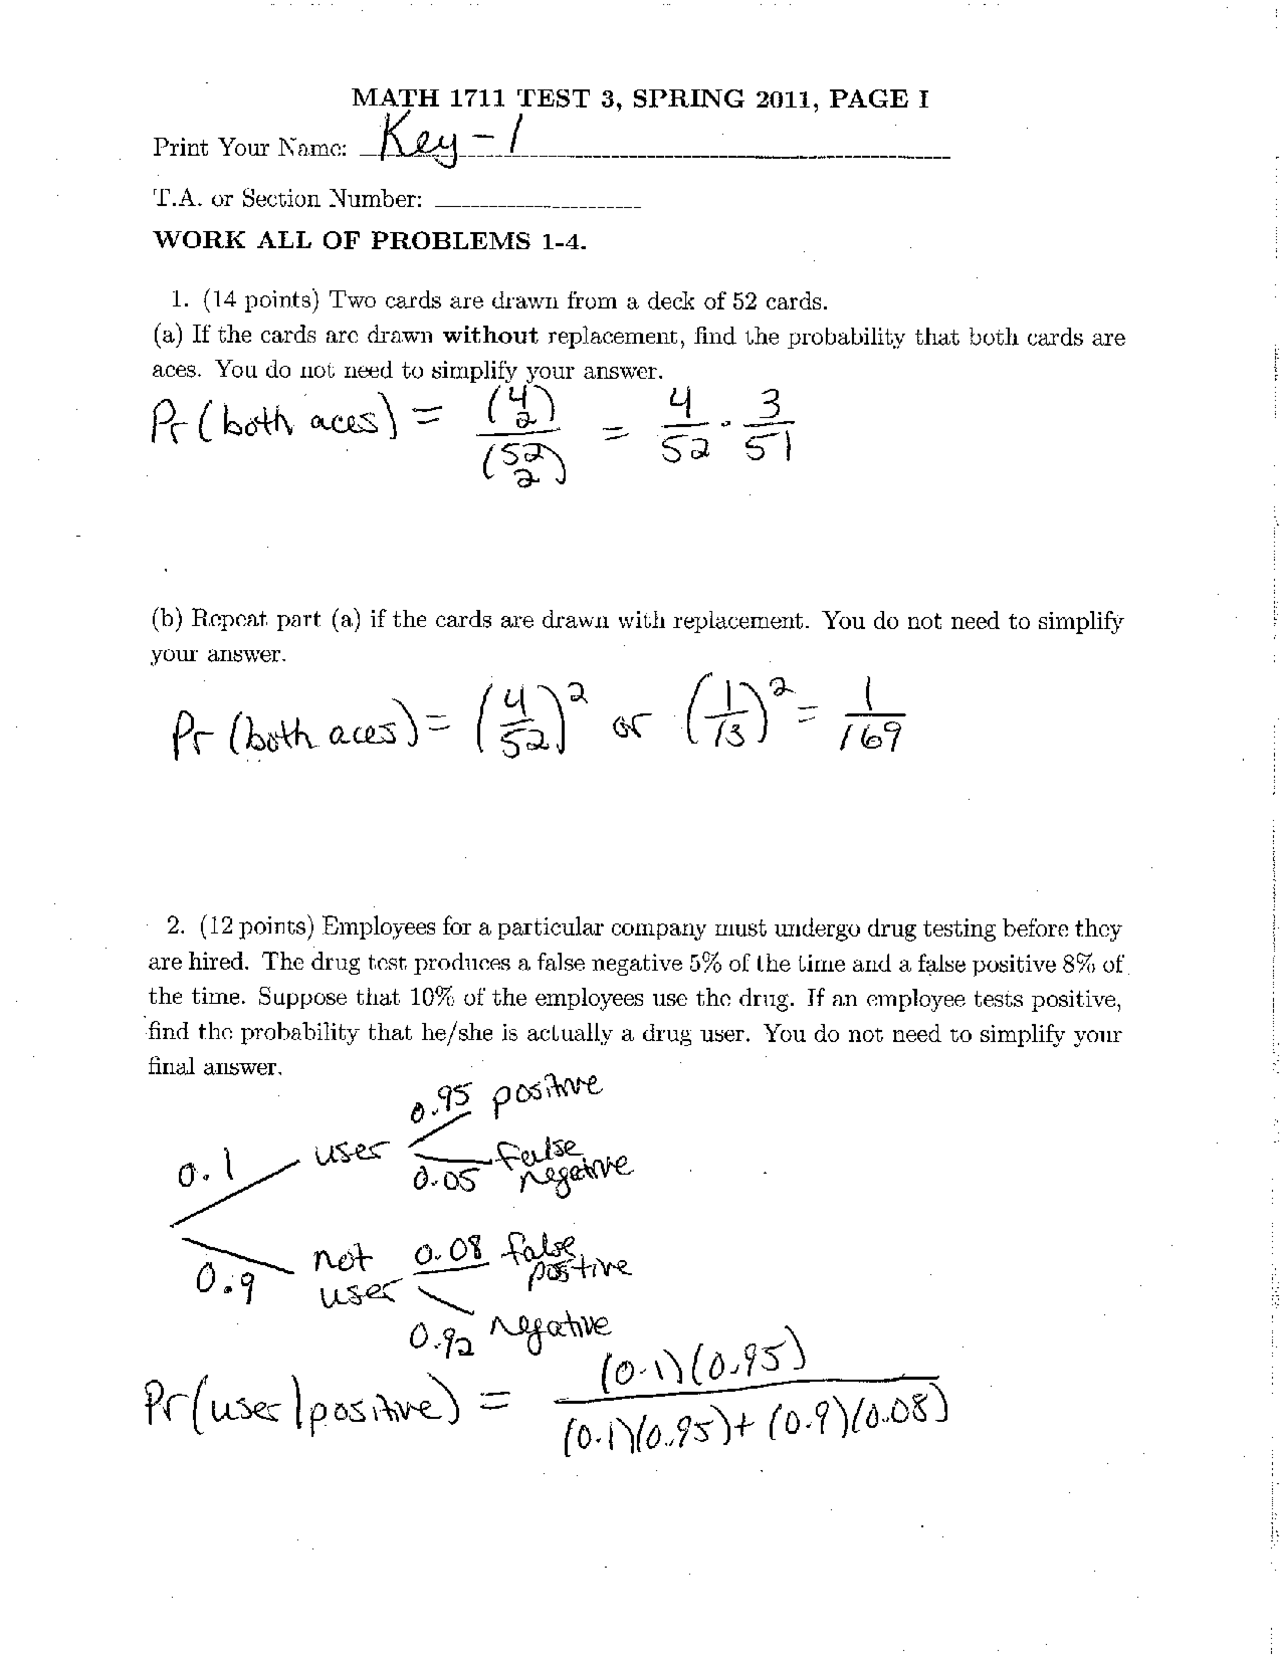 MATH 1711 TEST 3, SPRING 2011, PAGE I
Print Your Name: Key - 1
T.A. or Section Number:
WORK ALL OF PROBLEMS 1-4.
1. (14 points) Two cards are drawn from a deck of 52 cards.
(a) If the cards are drawn without replacement, find the probability that both cards are
aces. You do not need to simplify your answer.
Pr(both aces) = (4 2) / (52 2) = 4/52 · 3/51
(b) Repeat part (a) if the cards are drawn with replacement. You do not need to simplify
your answer.
Pr(both aces) = (4/52)² or (1/13)² = 1/169
2. (12 points) Employees for a particular company must undergo drug testing before they
are hired. The drug test produces a false negative 5% of the time and a false positive 8% of
the time. Suppose that 10% of the employees use the drug. If an employee tests positive,
find the probability that he/she is actually a drug user. You do not need to simplify your
final answer.
0.95 positive
0.1 user
0.05 false negative
0.9 not user
0.08 false positive
0.92 negative
Pr(user | positive) = (0.1)(0.95) / (0.1)(0.95) + (0.9)(0.08)